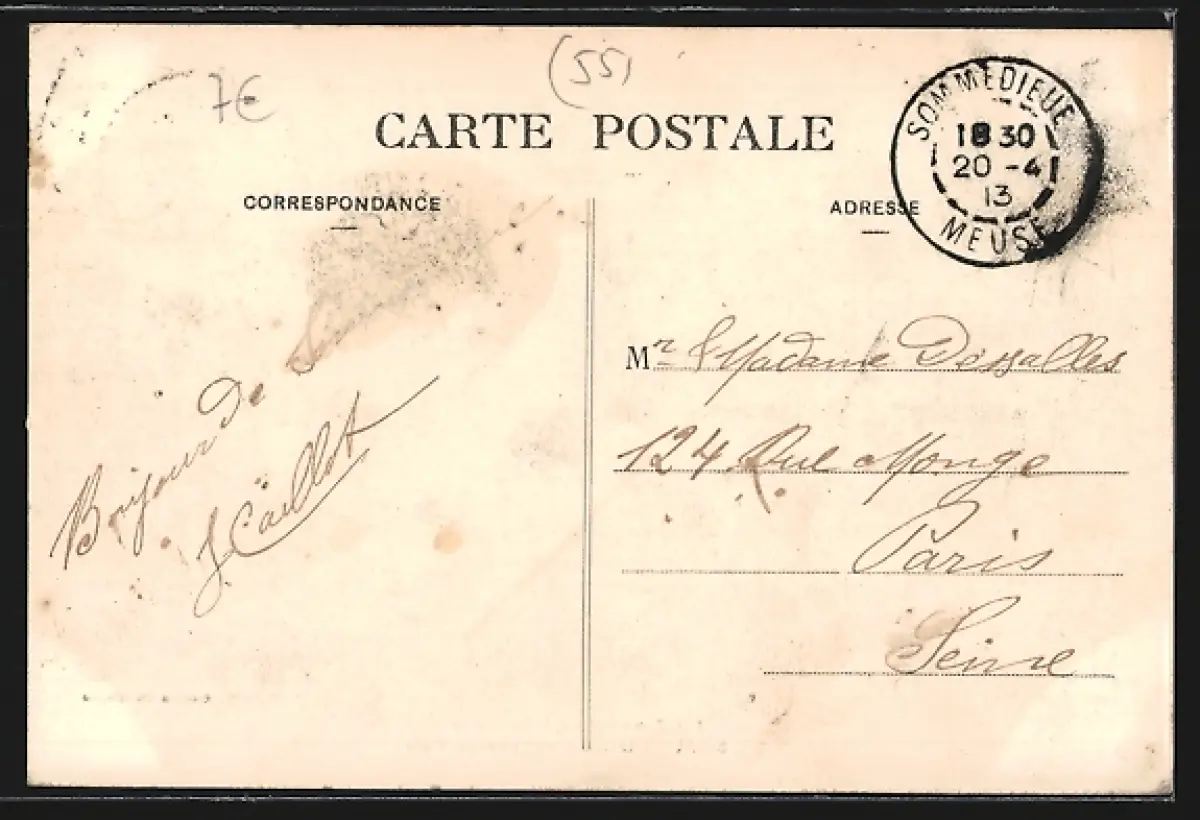 7€
(55)
CARTE POSTALE
SOMMEDIEUE
18 30
20 -4
13
MEUSE
CORRESPONDANCE
ADRESSE
Bonjour de
J Caillot
Mr & Madame Dessalles
124 Rue Monge
Paris
Seine